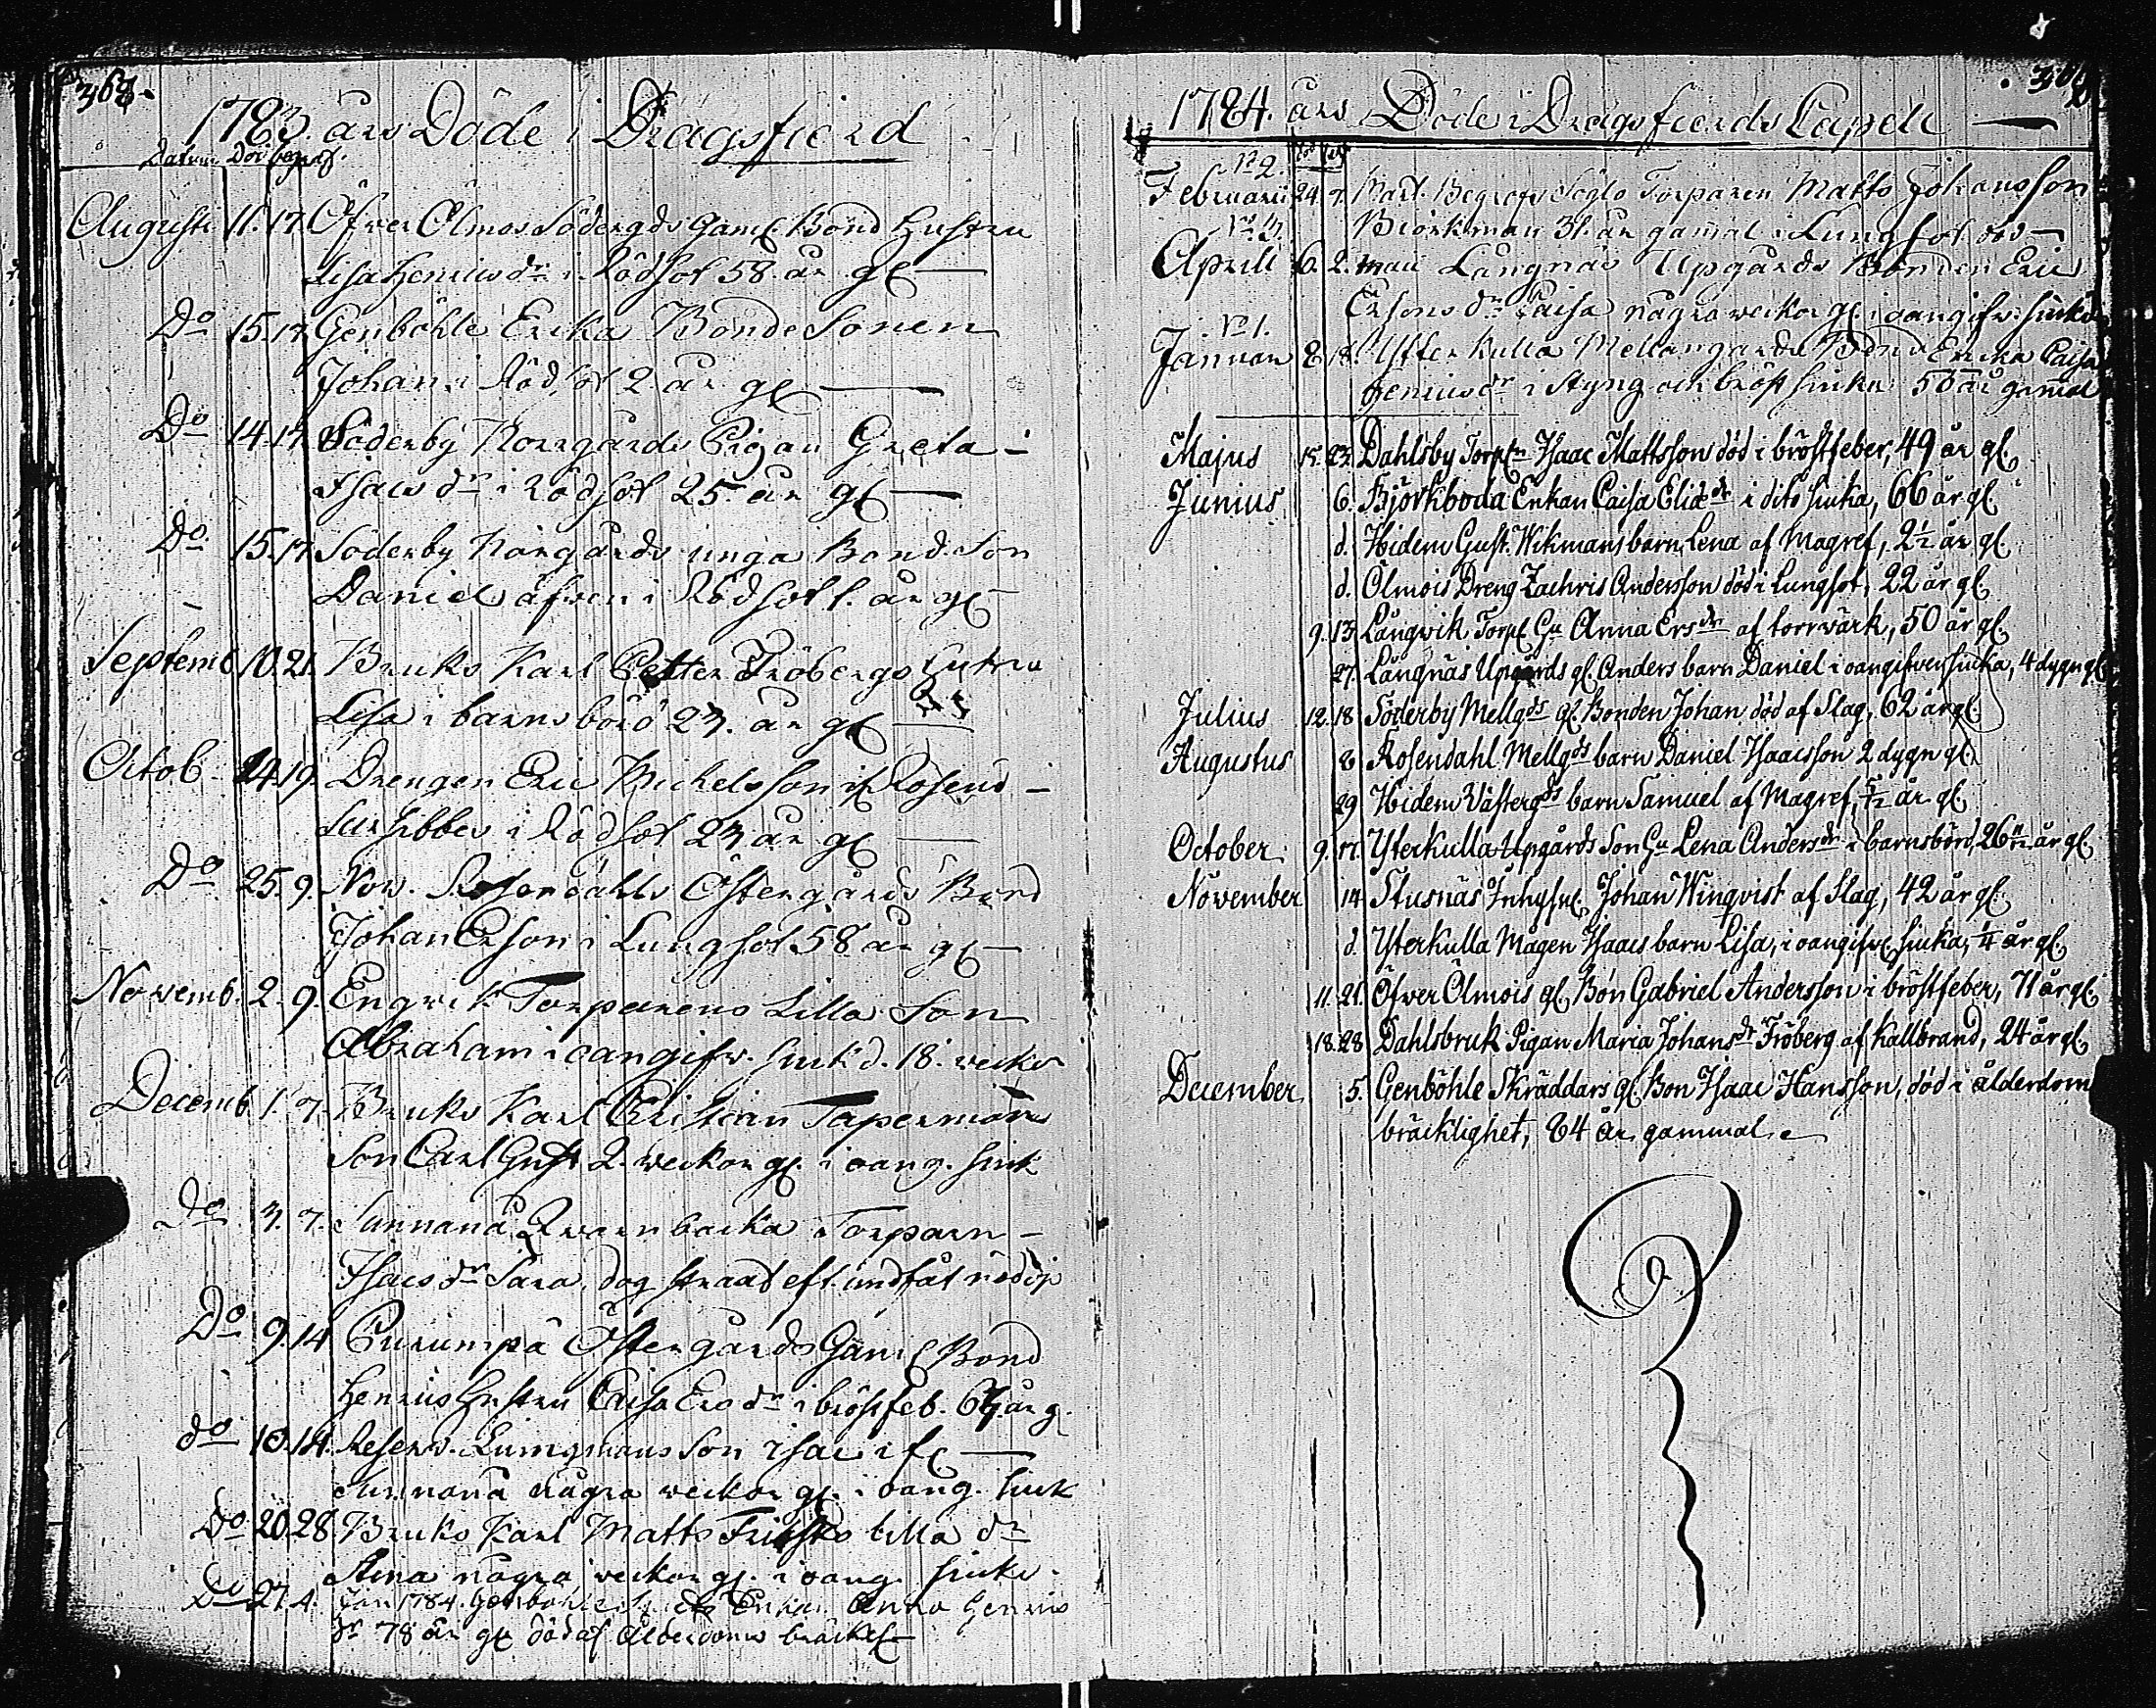 368.
1783. års Döde i Dragsfierd
Datum Död begrof.
Augusti 11. 17. Öfver Ölmos Södergds Gaml. Bond Hustru
Lisa Henricsdr i Rödsot 58. år gl
Do 15. 17. Genböhle Ericks Bonde Sonen
Johan i Rödsot 2 år gl
Do 14. 17. Söderby Norrgårds Pigan Greta
Isacs dr i Rödsot 25 år gl
Do 15. 17. Söderby Norgårds unga Bond. Son
Daniel äfven i Rödsot 1. år gl
Septemb. 10. 21. Bruks Karl Petter Fröbergs Hustru
Lisa i barnsbörd 23. år gl
Octob. 14. 19. Drengen Eric Mickelsson if Rosend
i Rödsot 23 år gl
Do 25. 9. Nov. Rosendahls Östergårds Bond
Johan Erson i Lungsot 58 år gl
Novemb. 2. 9. Engvik Torparens Lilla Son
Abraham i oangifv. siukd. 18. veckor
Decemb. 1. 7. Bruks Karl Cristian Tapermans
Son Carl Gust 2. veckor gl. i oang. siuk
Do 3. 7. Sunnanå Qvarnbacka Torparn
Isacs dr Sara, dog straxt eft. undfåt nöddop
Do 9. 14 Purunpä Östergårds Gaml Bond
Henrics Hustru Caisa Ers dr i bröstfeb. 67. år g.
do 10. 14. Reserv. Lungmans Son Isac if
Sunnanå några veckor gl. i oang. siuk
Do 20. 28 Bruks Karl Matts Frisks lilla dr
Stina några veckor gl. i oang. siukd.
Do 27. 4. Jan 1784. Genböhle Enkan Anna Henrics
dr 78 år gl död af Ålderdoms bräckl
1784. års Döde i Dragsfierds Capell
No 2.
Februarii 24. 7. Mart. Begrofs Söglo Torparen Matts Johansson
Biörkman 31. år gamal i Lungsot död
No 3.
Aprill 6. 2. maii Långnäs Upgårds Bonden Eric
Ersons dr Caisa några veckor gl. i oangifv. siukd
No 1.
Januari 8 18. Ytterkulla Mellangårds Bond Enka Caisa
Henricsdr i styng och bröst siuka 50 år gamal
Majus 15. 23. Dahlsby Torpn Isaac Mattsson död i bröstfeber, 49 år gl.
Junius 6. Björkboda Enkan Caisa Eliædr i dito siuka, 66 år gl.
d. Hidem Gust. Wikmans barn Lena af Magref, 2½ år gl.
d. Ölmois Dreng Zachris Andersson död i Lungsot, 22 år gl.
9. 13. Långwik Torp. Gu Anna Ersdr af torrwärk, 50 år gl.
27. Långnäs Upgårds gl. Anders barn Daniel i oangifven siuka, 4 dygn gl
Julius 12. 18 Söderby Mellgds gl. Bonden Johan död af Slag, 62 år gl.
Augustus 8 Rosendahl Mellgds barn Daniel Isaacsson 2 dygn gl.
29 Hidem Västergds barn Samuel af Magref, år gl.
October 9. 17. Ytterkulla Upgårds Son Gu Lena Andersdr i barnsbörd, 26 år gl.
November 14 Stusnäs Inhyses Johan Winqvist af Slag, 42 år gl.
d. Ytterkulla Mågen Isaacs barn Lisa, i oangifw. siuka, ¼ år gl.
11. 21. Öfwer Ölmois gl. Bon Gabriel Andersson i bröstfeber, 71 år gl.
18. 28 Dahlsbruk Pigan Maria Johansdr Fröberg af Kallbrand, 24 år gl.
December 5. Genböhle Skräddars gl. Bon Isaac Hansson, död i ålderdom
bräcklighet, 84 år gammal.